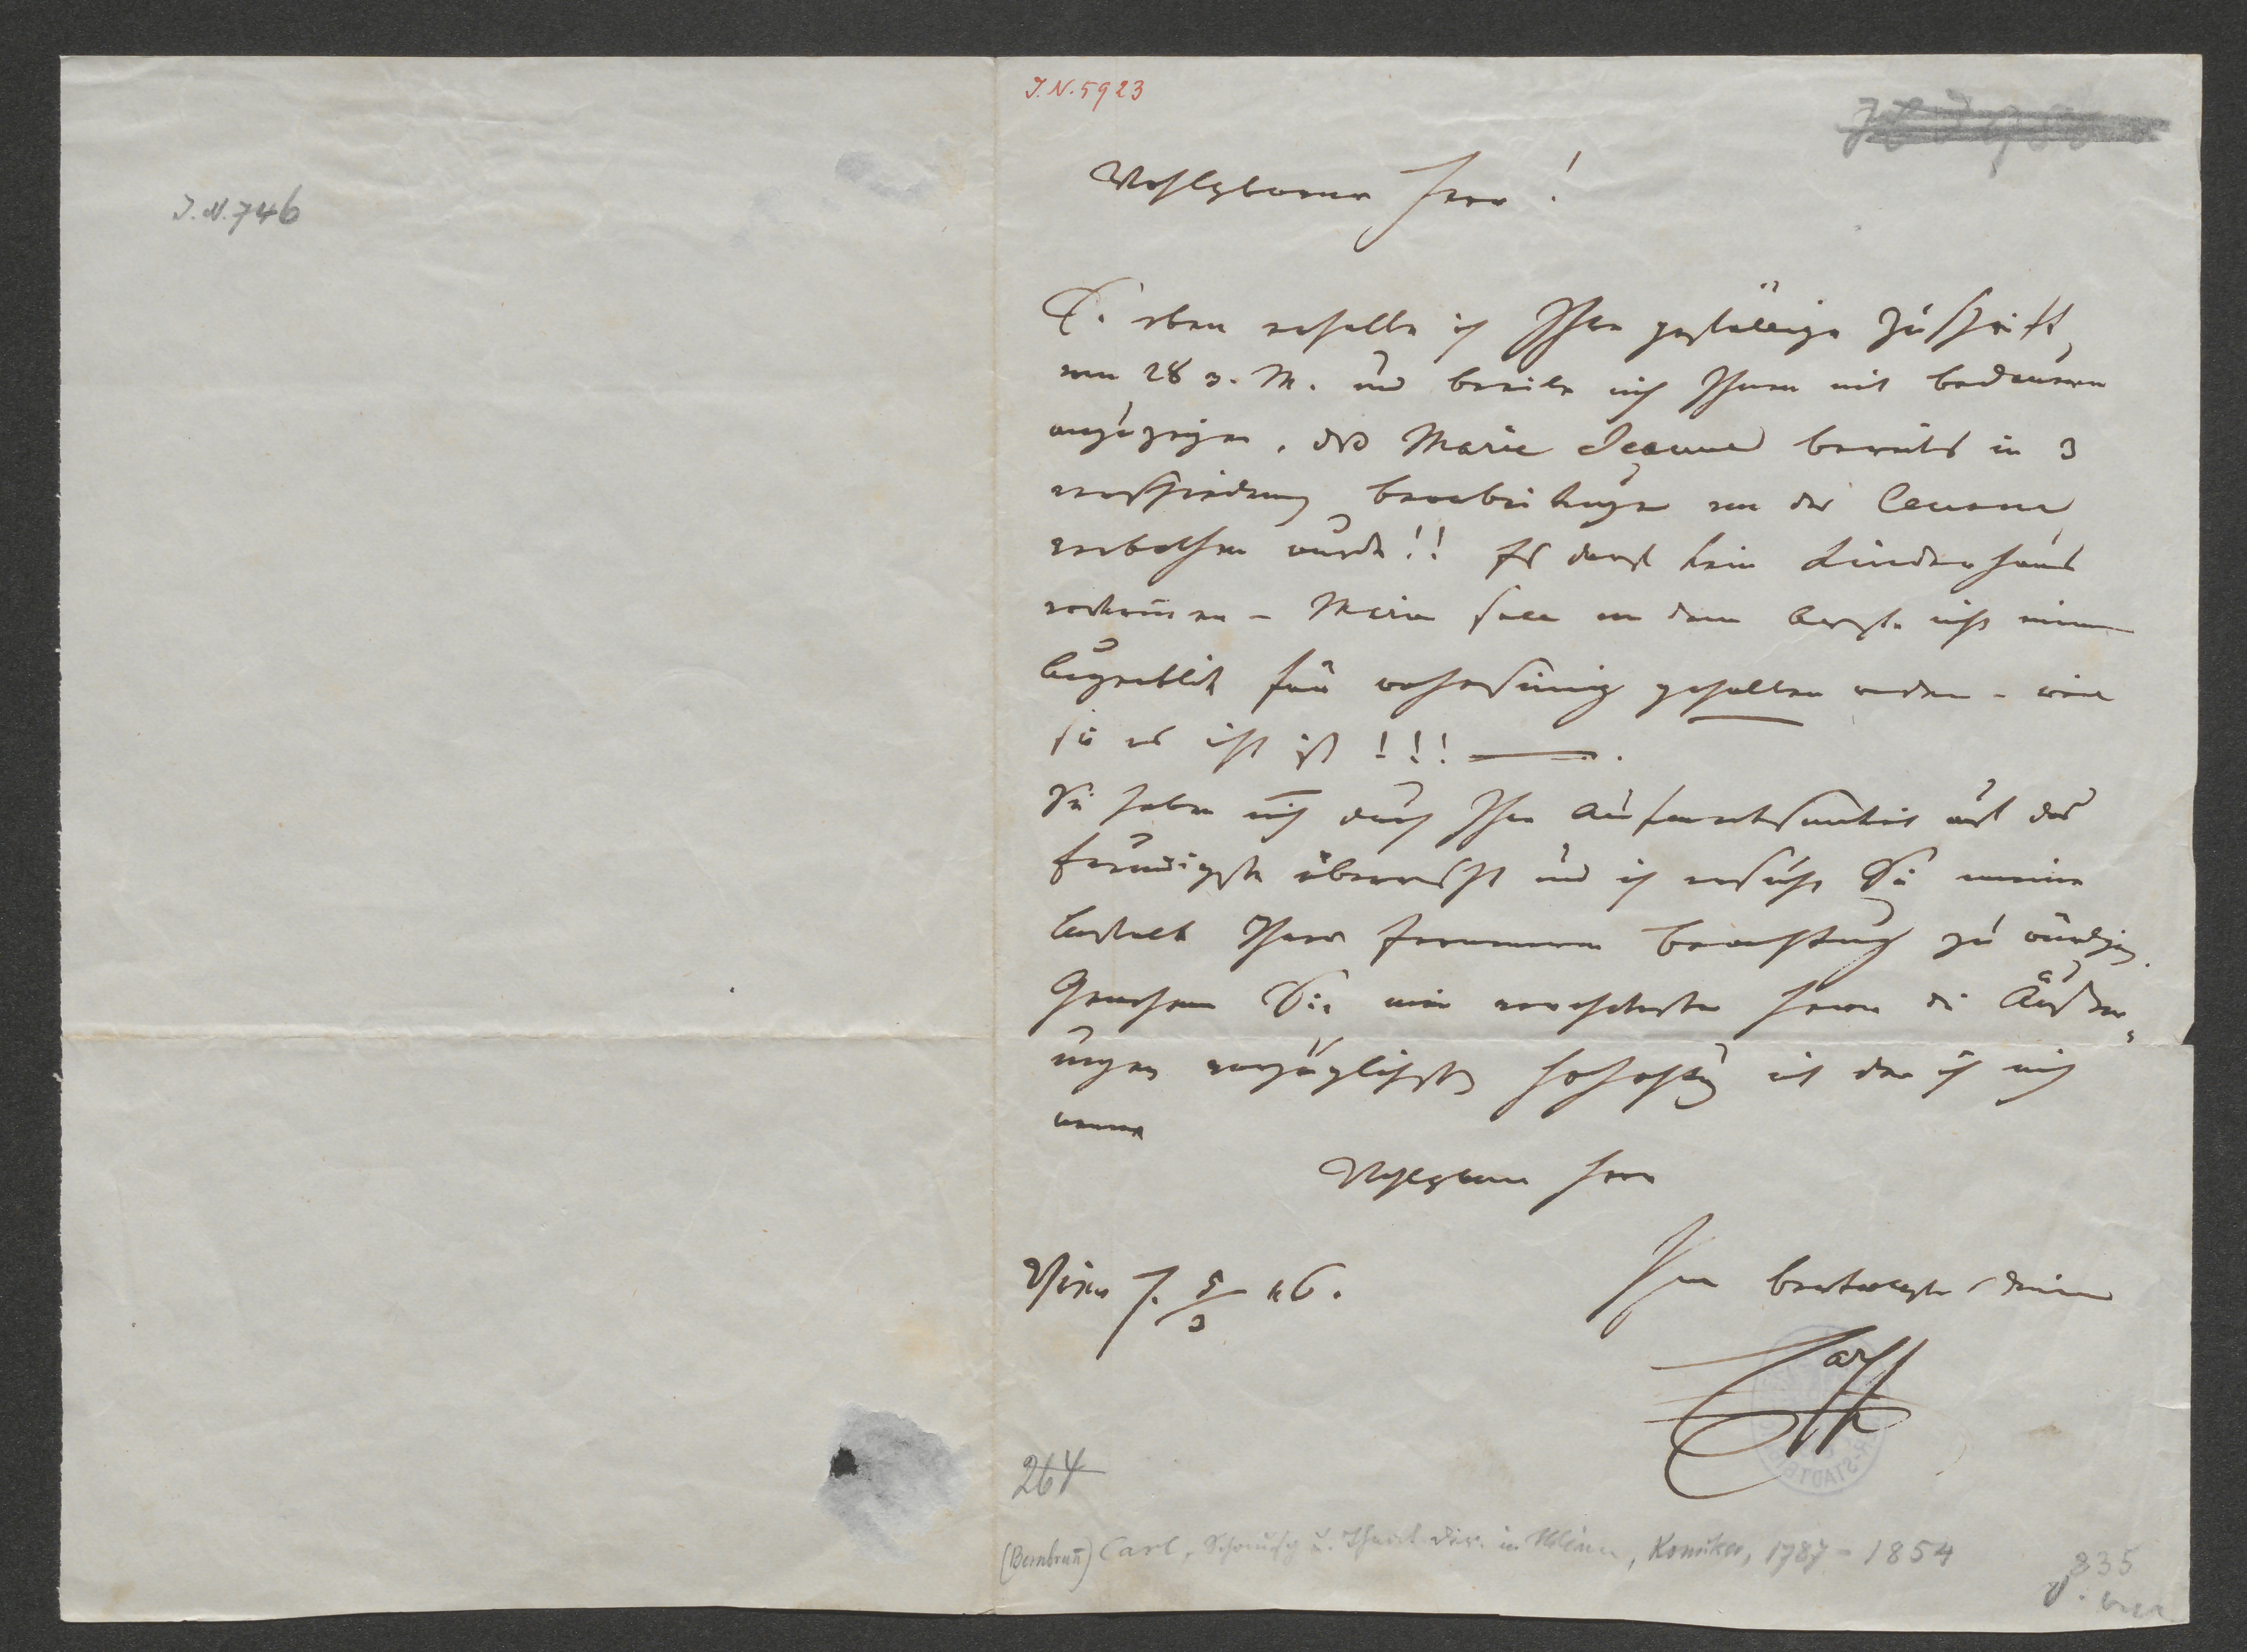 J.N.746
J.N.5923
Wohlgeborner Herr!
So eben erhalte ich Ihre gefällige Zuschrift
vom 28 v. M. und beeile mich Ihnen mit bedauern
anzuzeigen, daß Marie Jeanne bereits in 3
verschiedenen bearbeitungen von der Censur
verbothen wurde!! Es darf kein Kinderhaus
vorkommen – Marie soll von dem Arzte nicht einen
Augenblick für wahnsinnig gehalten werden – weil
sie es nicht ist!!! — .
Sie haben mich durch Ihre Aufmerksamkeit auf das
freudigste überrascht und ich ersuche Sie meine
Anstalt Ihrer ferneren beachtung zu würdigen.
Genehmen Sie mein verehrtester Herr die Äußer=
ungen vorzüglichster Hochachtung mit der ich mich
nenne
Wohlgeborner Herr
Wien d. 5/3 46.
Ihren
Diener
Carl
264
(Bernbrunn) Carl, Schausp. u. Theat. Dir. in Wien, Komiker, 1787–1854
835